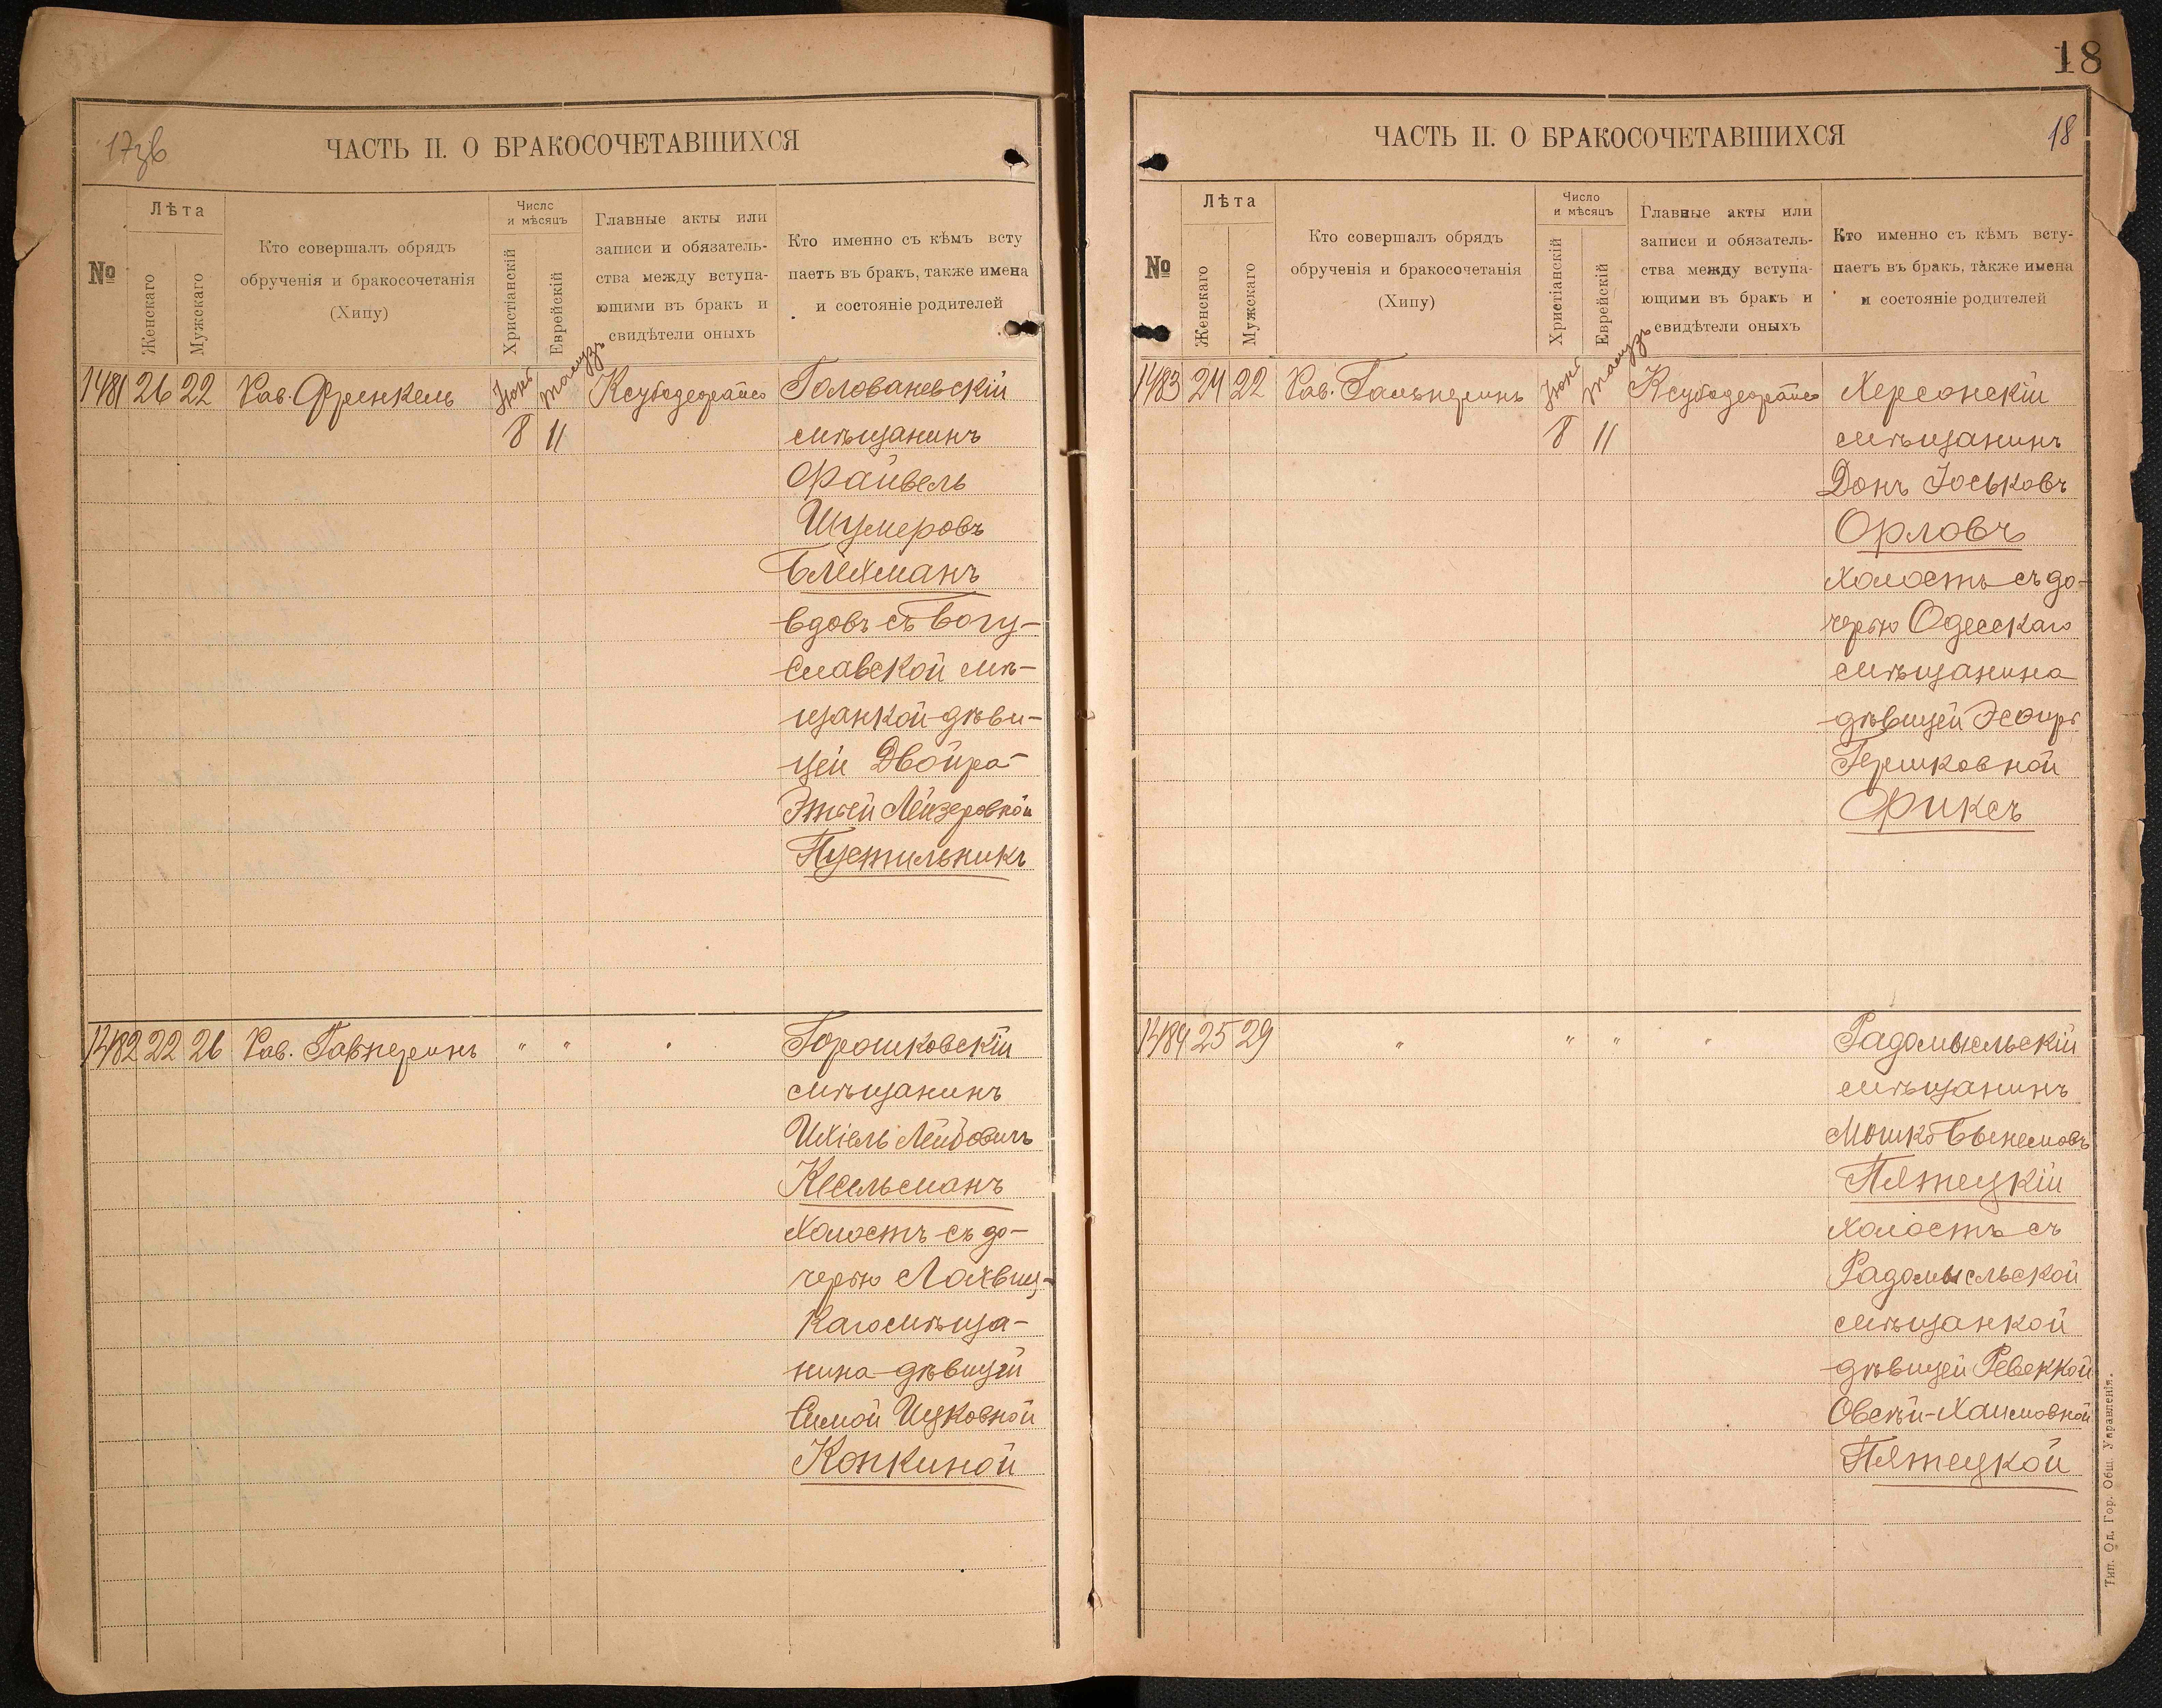 17зв
ЧАСТЬ II. О БРАКОСОЧЕТАВШИХСЯ
№
Лѣта
Женскаго
Мужскаго
Кто совершалъ обрядъ
обрученія и бракосочетанія
(Хипу)
Число
и мѣсяцъ
Христіанскій
Еврейскій
Главные акты или
записи и обязатель-
ства между вступа-
ющими въ бракъ и
свидѣтели оныхъ
Кто именно съ кѣмъ всту
паетъ въ бракъ, также имена
и состояніе родителей
1481 26 22 Рав. Френкель Іюнь Тамузъ Головановскій
8 11 мѣщанинъ
Файвель
Шумеровъ
Блехманъ
вдовъ съ Богу-
славской мѣ-
щанкой-дѣви-
цей Двойра-
Этей Лейзеровной
Пустильникъ
1482 22 26 Рав. Гальперинъ " " " Горошковскій
мѣщанинъ
Ихіель Лейбовичъ
Кесельманъ
холостъ съ до-
черью Лохвиц-
каго мѣща-
нина-дѣвицей
Симой Ицковной
Конкиной
18
ЧАСТЬ II. О БРАКОСОЧЕТАВШИХСЯ
18
№
Лѣта
Женскаго
Мужскаго
Кто совершалъ обрядъ
обрученія и бракосочетанія
(Хипу)
Число
и мѣсяцъ
Христіанскій
Еврейскій
Главные акты или
записи и обязатель-
ства между вступа-
ющими въ бракъ и
свидѣтели оныхъ
Кто именно съ кѣмъ всту-
паетъ въ бракъ, также имена
и состояніе родителей
1483 24 22 Рав. Гальперинъ Іюнь Тамузъ Херсонскій
8 11 мѣщанинъ
Донъ Іоськовъ
Орловъ
холостъ съ до-
черью Одесскаго
мѣщанина
дѣвицей Эсѳирь
Гершковной
Фиксъ
1484 25 29 " " " " Радомысльскій
мѣщанинъ
Мошко Бынемовъ
Пятецкій
холостъ съ
Радомысльской
мѣщанкой
дѣвицей Ревеккой
Овсѣй-Хаимовной
Пятецкой
Тип. Од. Гор. Общ. Управленія.